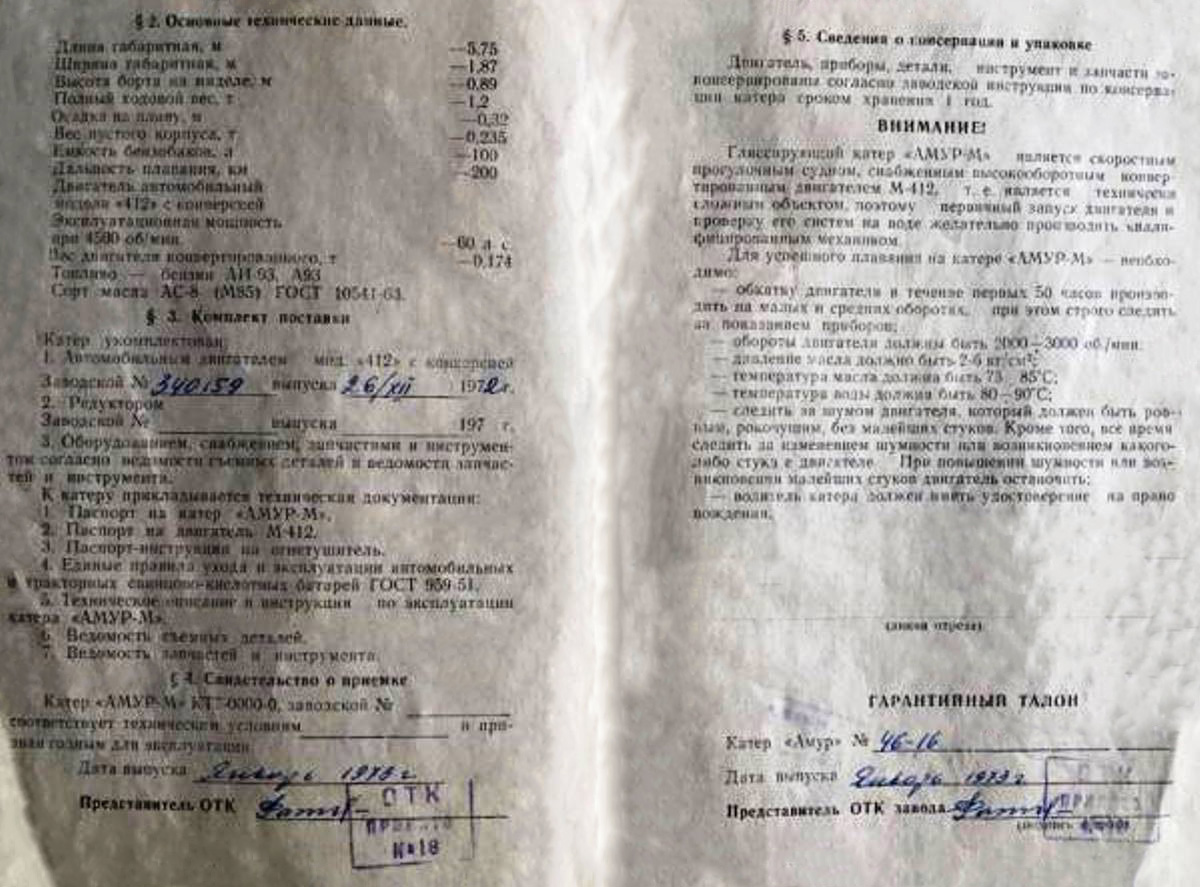 § 2. Основные технические данные.
Длина габаритная, м —5,75
Ширина габаритная, м —1,87
Высота борта на миделе, м —0,89
Полный ходовой вес, т —1,2
Осадка на плаву, м —0,32
Вес пустого корпуса, т —0,235
Емкость бензобаков, л —100
Дальность плавания, км —200
Двигатель автомобильный
модели «412» с конверсией
Эксплуатационная мощность
при 4500 об/мин. —60 л. с.
Вес двигателя конвертированного, т —0,174
Топливо — бензин АИ-93, А93
Сорт масла АС-8 (М85) ГОСТ 10541-63.
§ 3. Комплект поставки
Катер укомплектован:
1. Автомобильным двигателем мод. «412» с конверсией
Заводской № 340159 выпуска 26/XII 1972 г.
2. Редуктором
Заводской № выпуска 197 г.
3. Оборудованием, снабжением, запчастями и инструмен-
том согласно ведомости съемных деталей и ведомости запчас-
тей и инструмента.
К катеру прикладывается техническая документация:
1. Паспорт на катер «АМУР-М».
2. Паспорт на двигатель М-412.
3. Паспорт-инструкция на огнетушитель.
4. Единые правила ухода и эксплуатации автомобильных
и тракторных свинцово-кислотных батарей ГОСТ 959-51.
5. Техническое описание и инструкция по эксплуатации
катера «АМУР-М».
6. Ведомость съемных деталей.
7. Ведомость запчастей и инструмента.
§ 4. Свидетельство о приемке
Катер «АМУР-М» заводской №
соответствует техническим условиям и приз-
знан годным для эксплуатации
Дата выпуска Январь 1973 г
Представитель ОТК
ОТК
ПРИНЯТО
№18
§ 5. Сведения о консервации и упаковке
Двигатель, приборы, детали, инструмент и запчасти за-
консервированы согласно заводской инструкции по консерва-
ции катера сроком хранения 1 год.
ВНИМАНИЕ!
Глиссирующий катер «АМУР-М» является скоростным
прогулочным судном, снабженным высокооборотным конвер-
тированным двигателем М-412, т. е. является технически
сложным объектом, поэтому первичный запуск двигателя и
проверку его систем на воде желательно производить квали-
фицированным механиком.
Для успешного плавания на катере «АМУР-М» — необхо-
димо:
— обкатку двигателя в течение первых 50 часов произво-
дить на малых и средних оборотах, при этом строго следить
за показанием приборов;
— обороты двигателя должны быть 2000—3000 об./мин.
— давление масла должно быть 2-6 кг/см²;
— температура масла должна быть 75—85°С;
— температура воды должна быть 80—90°С;
— следить за шумом двигателя, который должен быть ров-
ным, рокочущим, без малейших стуков. Кроме того, все время
следить за изменением шумности или возникновением какого-
либо стука в двигателе. При повышении шумности или воз-
никновении малейших стуков двигатель остановить;
— водитель катера должен иметь удостоверение на право
вождения.
(линия отреза)
ГАРАНТИЙНЫЙ ТАЛОН
Катер «Амур» № 46-16
Дата выпуска Январь 1973 г
Представитель ОТК завода